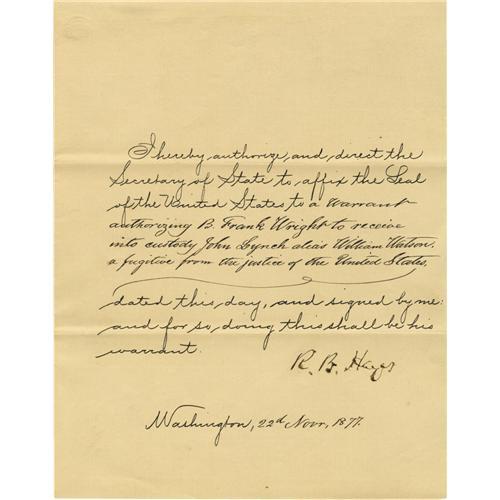 I hereby authorize and direct the
Secretary of State to affix the Seal
of the United States to a warrant
authorizing B. Frank Wright to receive
into custody John Lynch alias William Watson,
a fugitive from the justice of the United States,
dated this day, and signed by me:
and for so doing this shall be his
warrant.
R. B. Hayes
Washington, 22d Novr, 1877.